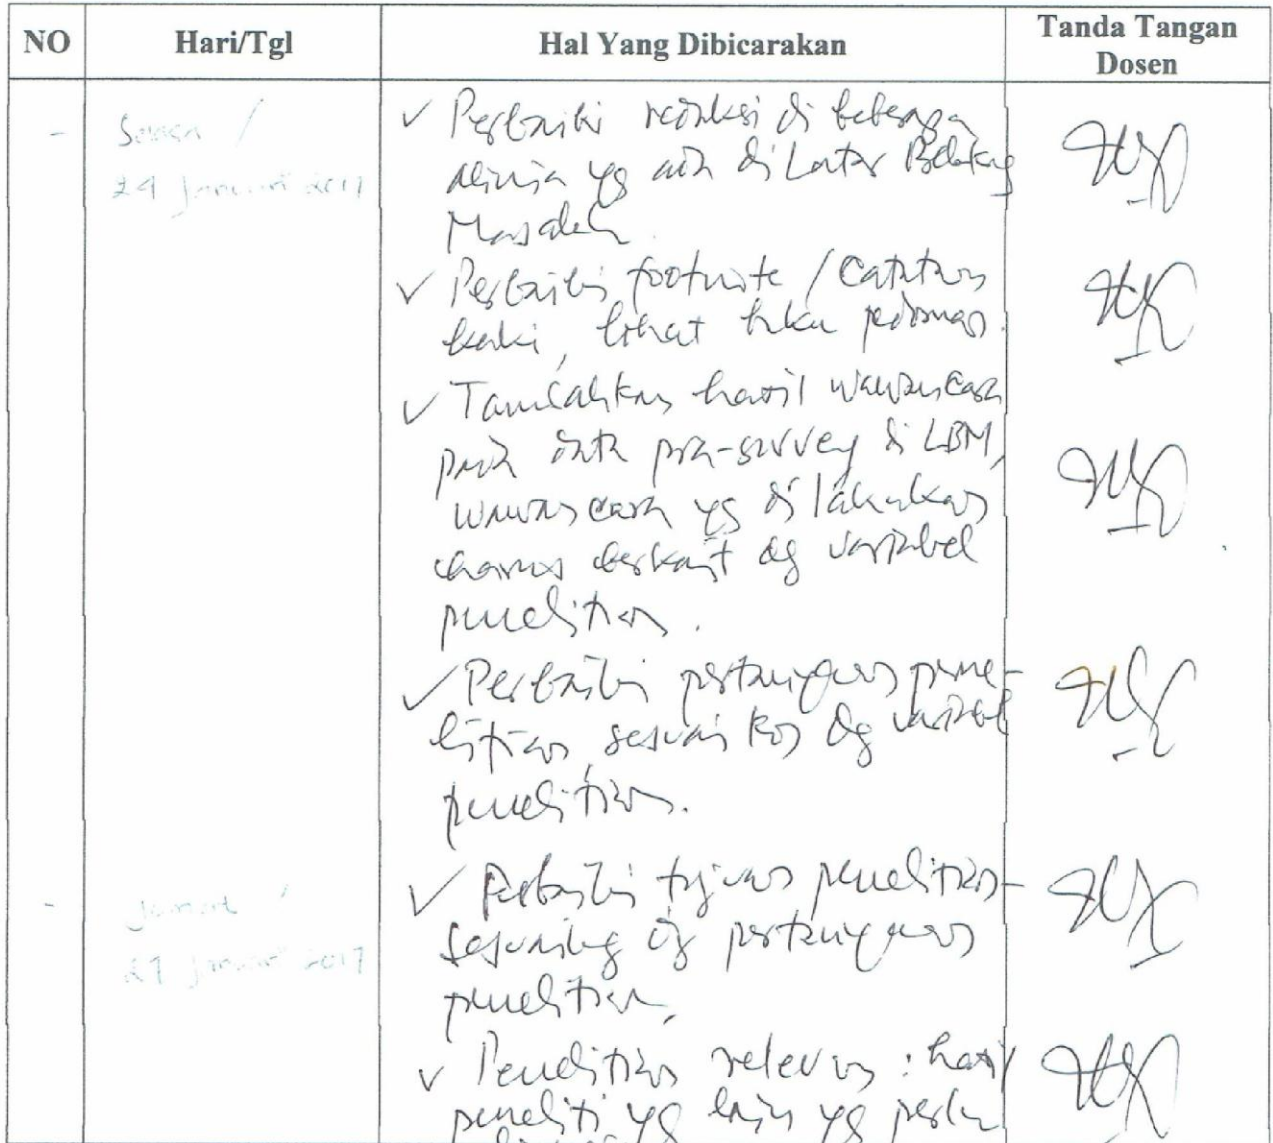 NO Hari/Tgl Hal Yang Dibicarakan Tanda Tangan
Dosen
- Selasa / ✓ Perbaiki redaksi di beberapa
24 Januari 2017 alinia yg ada di Latar Belakang
Masalah.
✓ Perbaiki footnote / catatan
kaki, lihat buku pedoman.
✓ Tambahkan hasil wawancara
pada data pra-survey di LBM,
wawancara yg di lakukan
harus berkait dg variabel
penelitian.
✓ Perbaiki pertanyaan pene-
litian, sesuaikan dg variabel
penelitian.
- Jumat / ✓ Perbaiki tujuan penelitian
27 Januari 2017 dg pertanyaan
penelitian,
✓ Penelitian relevan : hasil
peneliti yg lain yg perlu